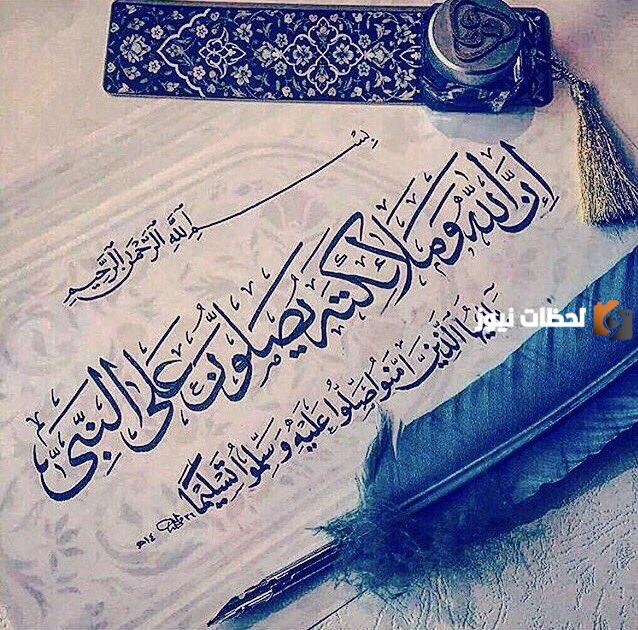 بِسْمِ ٱللَّهِ ٱلرَّحْمَٰنِ ٱلرَّحِيمِ
إِنَّ اللَّهَ وَمَلَائِكَتَهُ يُصَلُّونَ عَلَى النَّبِيِّ
يَا أَيُّهَا الَّذِينَ آمَنُوا صَلُّوا عَلَيْهِ وَسَلِّمُوا تَسْلِيمًا
لحظات نيوز